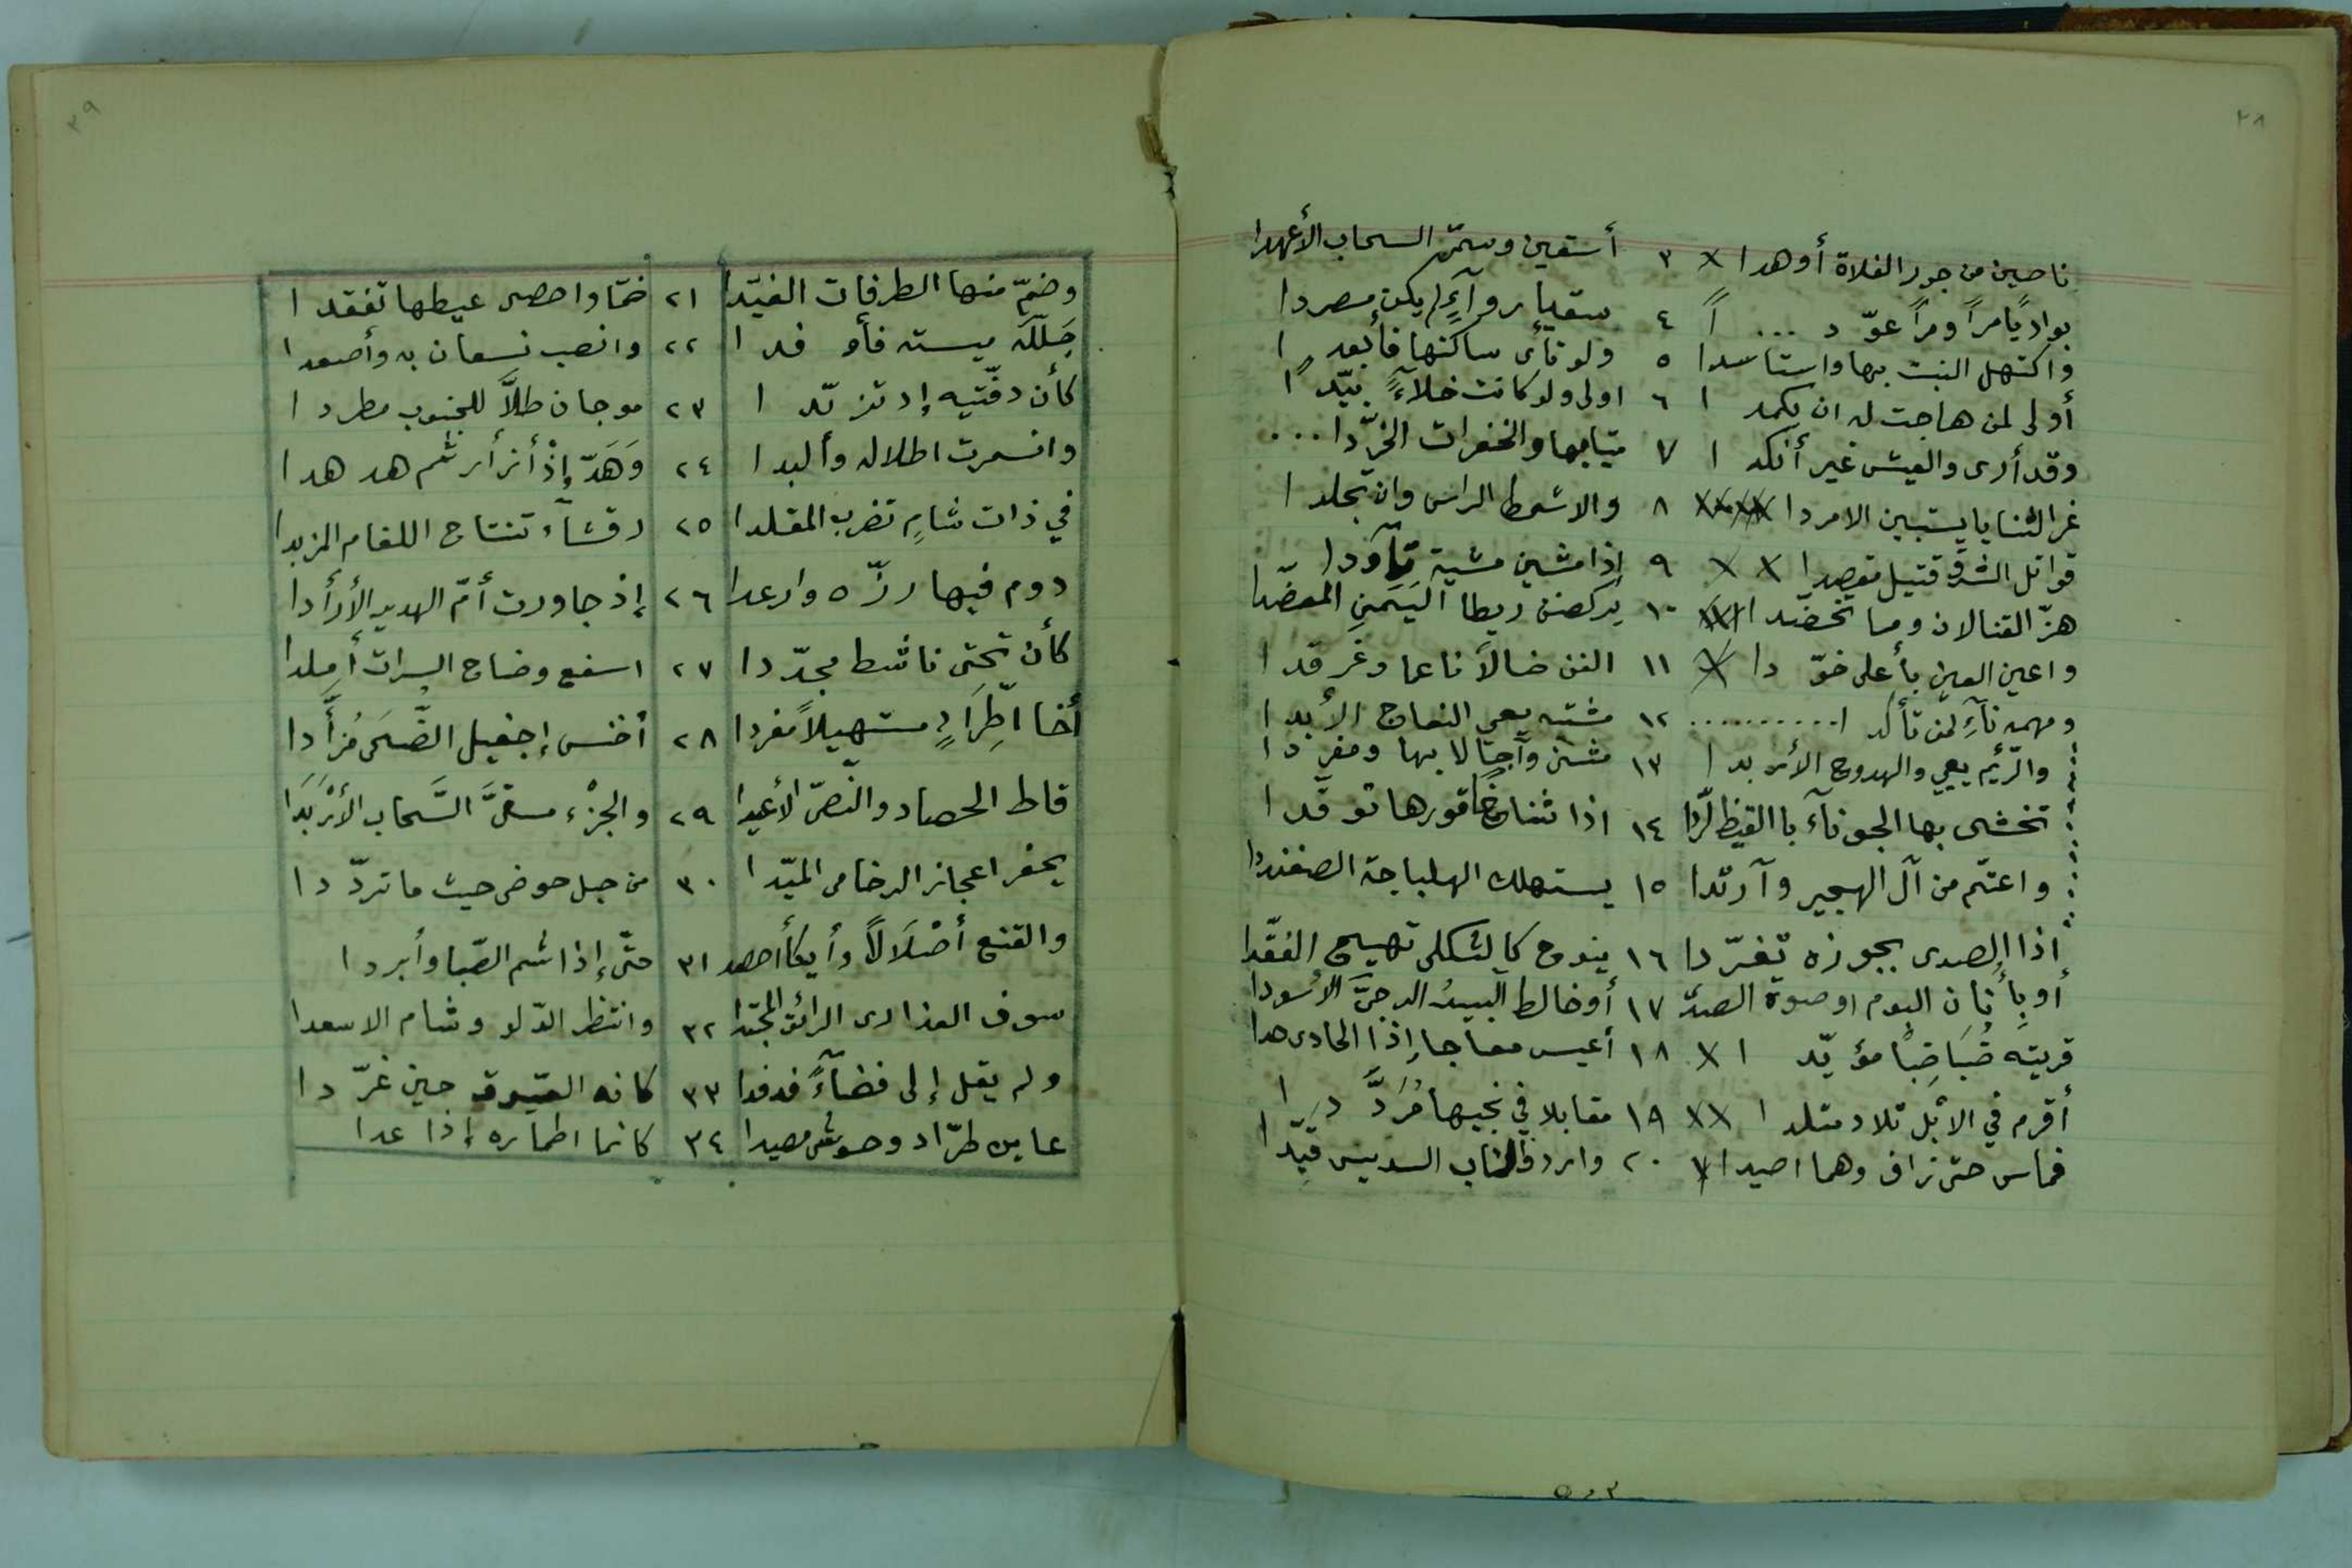 ٣٨
ناصين من جور الفلاة أوهدا ٣ أسقين وسمىّ السحاب الأعهدا
بوادياً مراً ومراً عوّد ... اً ٤ سقيا رواءٍ لم يكن مصردا
واكتهل النبت بها واستاسدا ٥ ولو نأى ساكنها فأبعدا
أولى لمن هاجت له ان يكمدا ٦ اولى ولو كانت خلاءً بيّدا
وقد أرى والعيش غير أنكدا ٧ ميّا بها والخفرات الخرّدا ...
غر الثنايا يستبين الامردا ٨ والاشمط الراس وان تجلدا
قواتل الشرق قتيل مقصدا ٩ إذا مشين مشية تأودا
هزّ القنا لان وما تخضّدا ١٠ يركضن ريط اليمن المعضّدا
واعين العين بأعلى خوّدا ١١ الفن ضالاً ناعما وغرقدا
ومهمه ناءٍ لمن تأكدا .......... ١٢ مشتبه يعي النعاج الأبدا
والرّئم يعيي والهدوج الأربدا ١٣ مثنى وآجالا بها ومفردا
تخشى بها الجوناء بالقيظ الرّدا ١٤ اذا شناخا قورها توقدا
واعتّم من آل الهجير وآرتدا ١٥ يستهلك الهلباجة الضفنددا
إذا الصدى بجوزه تغرّدا ١٦ ينوح كالثكلى تهيج الفقّدا
أو بأنأن البوم او صوت الصدّ ١٧ أو خالط البيدُ الدجىَّ الأسودا
قريته ضُبَاضِباً مؤيّدا ١٨ أعيس معاجا إذا الحادى حدا
أقرم في الابل تلاد متلدا ١٩ مقابلا في نجيها مُرَدَّدا
فماس حتى زاف وهما اصيدا ٢٠ واردف الناب السديس فيّدا
٣٩
وضمّ منها الطرفات الفيّدا ٢١ ضمّا واحصى عيطها تفقدا
جَللته ميسته فأوفدا ٢٢ وانصب نسعان به وأصعدا
كأن دفّتيه إذ تزيّدا ٢٣ موجان ظلاَّ للجنوب مطردا
وانسمرت اطلاله وألبدا ٢٤ وَهَدّ إذْ أزأر ثم هدهدا
في ذات شامٍ تضرب المقلدا ٢٥ رقشاء تنتاح اللغام المزبدا
دوم فيها رزّه وارعدا ٢٦ إذ جاورت أمّ الهدير الأرأدا
كأن تحتى ناشط مجدّدا ٢٧ اسفع وضاح السرات أملدا
أخا اطِّرادٍ مستهيلاً مفردا ٢٨ أخنس إجفيل الضَّحَى مُزأدا
قاط الحصاد والنّصىّ الأغيدا ٢٩ والجزْء مسقىَّ السَّحاب الأرْبَدَا
يحفر اعجاز الرخامى الميّدا ٣٠ من حبل حوضى حيث ما تردّدا
والقنع أضْلَالاً وأيكأ أحصدا ٣١ حتّى إذا شم الصّبا وأبردا
سوف العذارى الرائق المجّدا ٣٢ وانتظر الدّلو وشام الاسعدا
ولم يقل إلى فضاءً فدفدا ٣٣ كانه العيوق حين غرّدا
عاين طرّاد وحوش مصيدا ٣٤ كانما اطماره إذا عدا